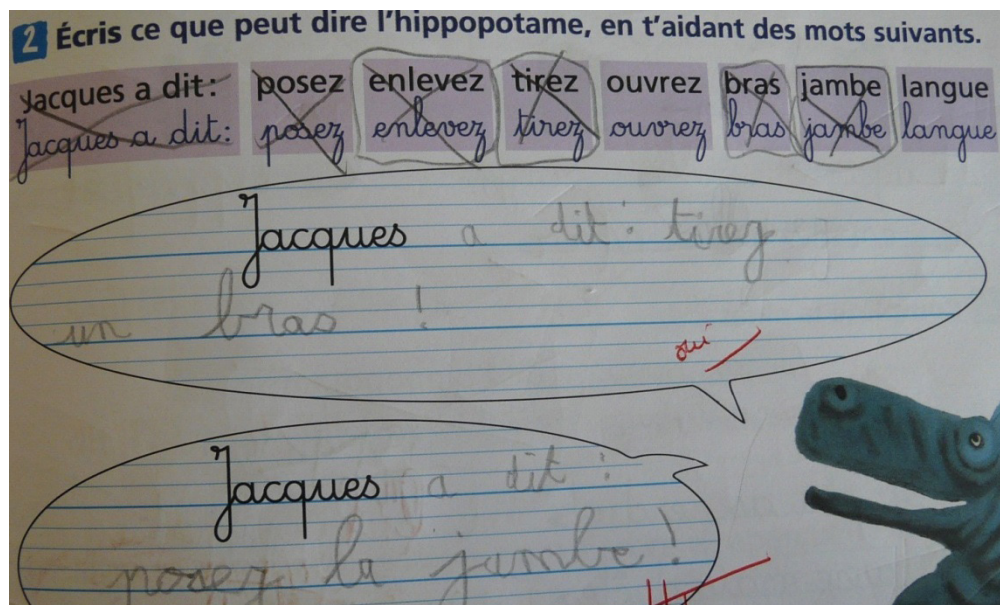 2 Écris ce que peut dire l'hippopotame, en t'aidant des mots suivants.
Jacques a dit: posez enlevez tirez ouvrez bras jambe langue
Jacques a dit: posez enlevez tirez ouvrez bras jambe langue
Jacques a dit : tirez
un bras !
oui
Jacques a dit :
posez la jambe !